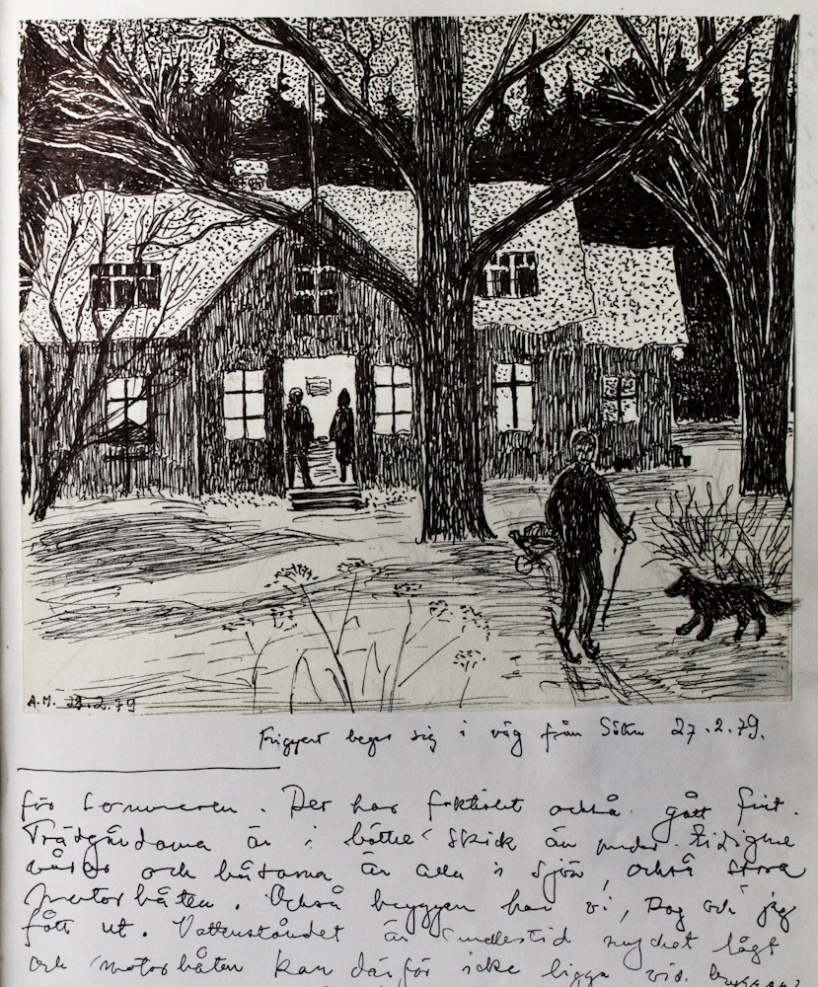 A.M. 28.2.79
beger sig i väg från 27.2.79.
för sommaren. Det har faktiskt också gått fint.
Trädgårdarna är i bättre skick än under tidigare
vårar och båtarna är alla i sjön, också stora
motorbåten. Också bryggan har vi, Dag och jag
fått ut. Vattenståndet är emellertid mycket lågt
och motorbåten kan därför icke ligga vid bryggan